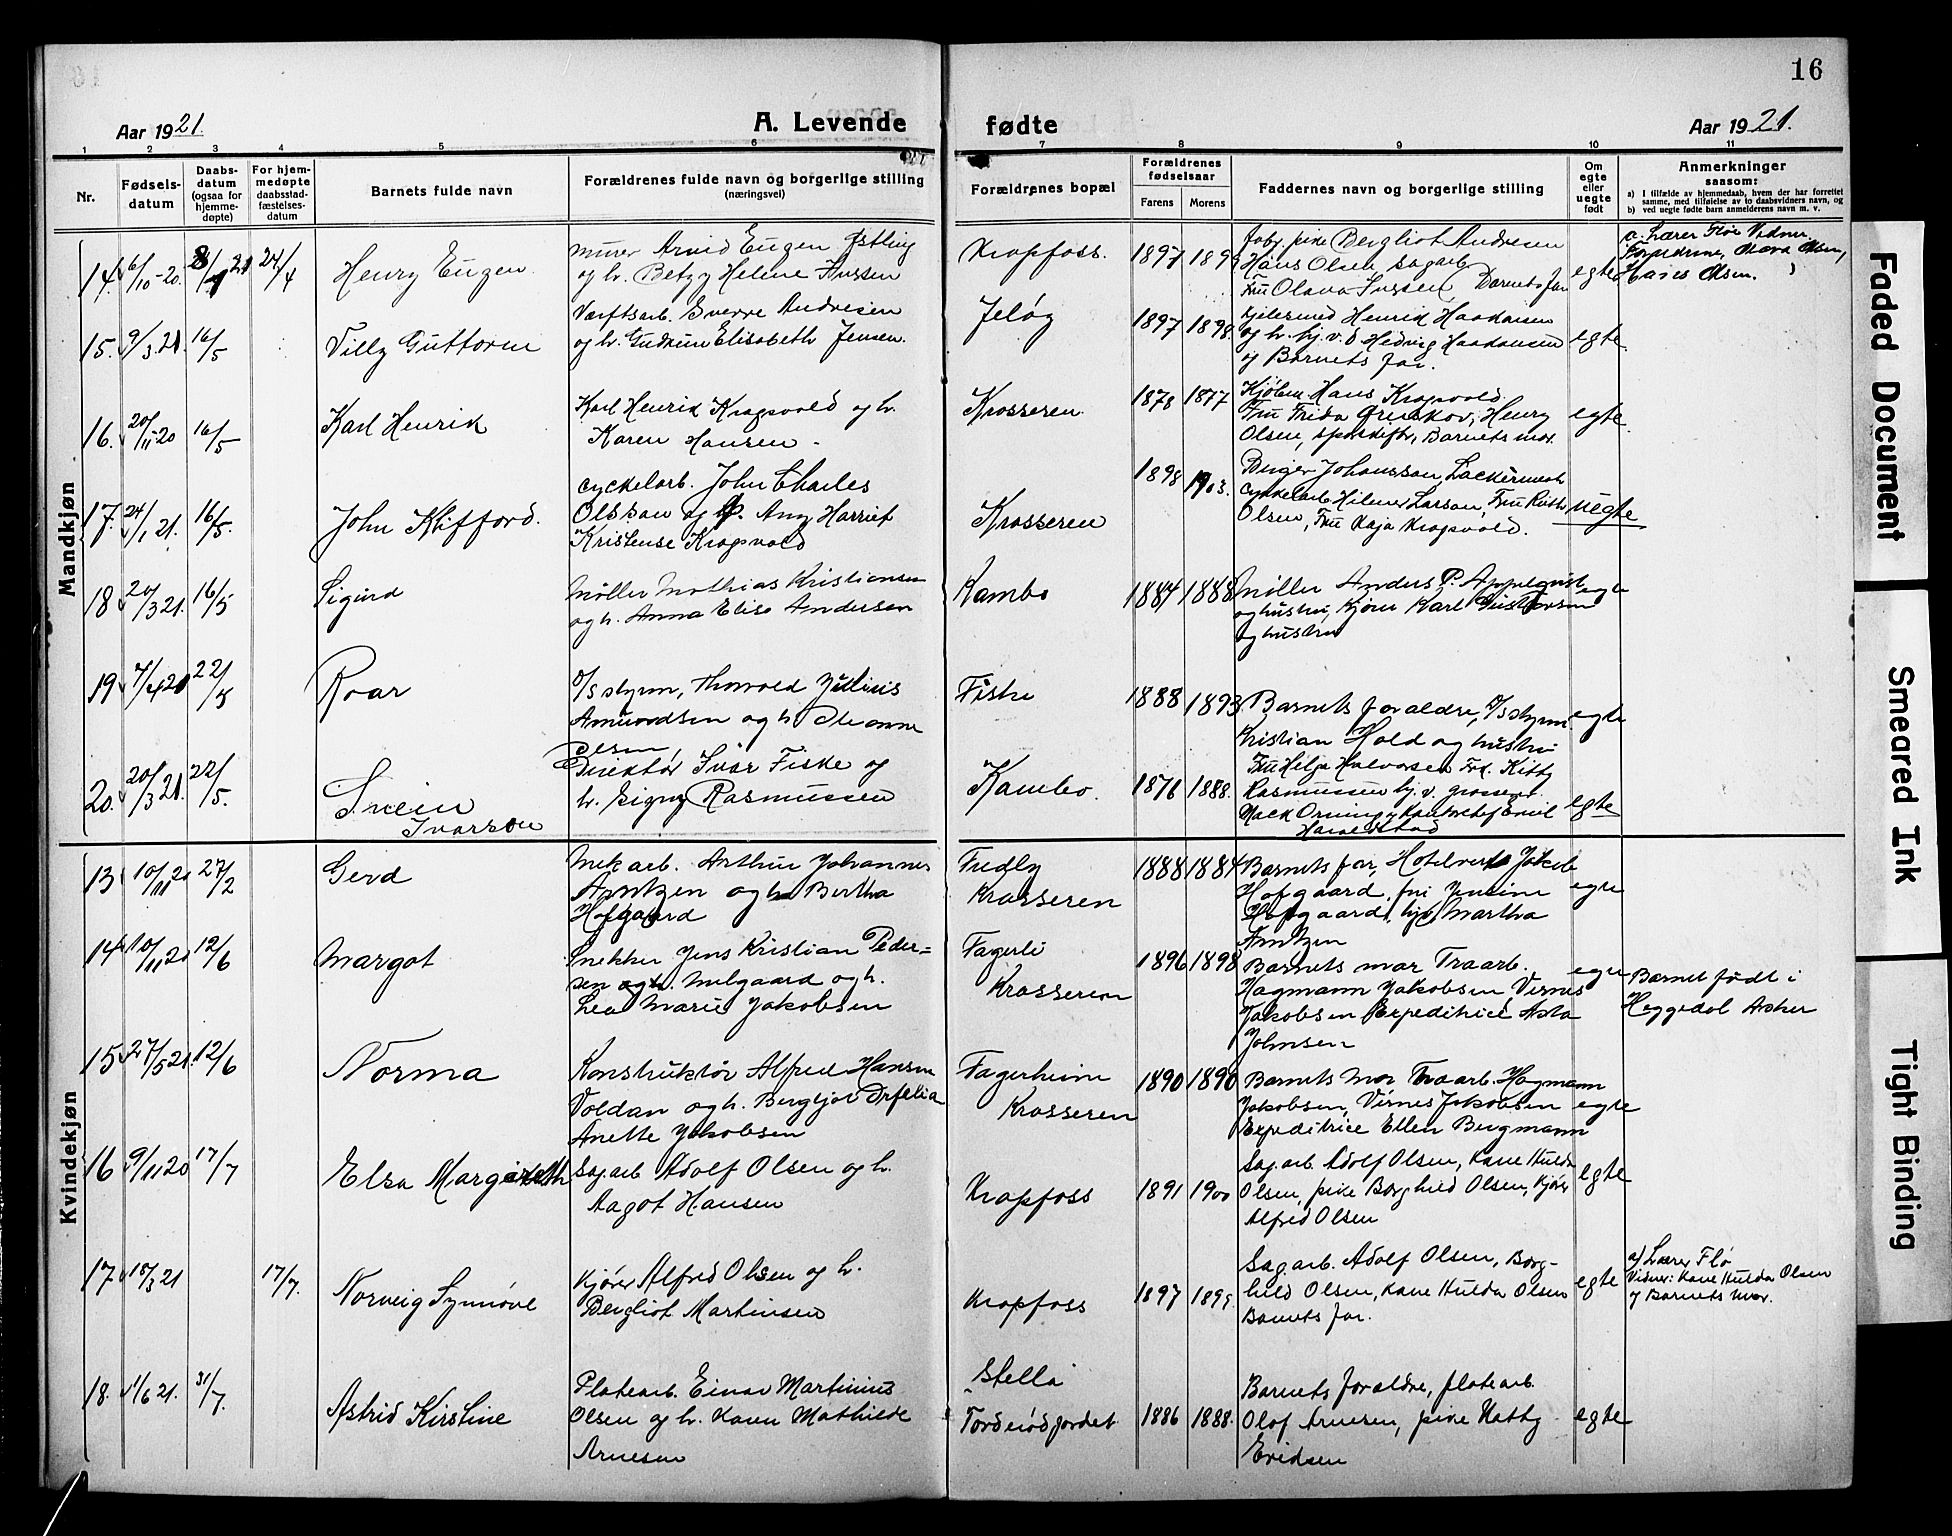 16
Aar 1921.
A. Levende fødte
Aar 1921.
1 2 3 4 5 6 7 8 9 10 11
Nr.
Fødsels-
datum
Daabs-
datum
(ogsaa for
hjemme-
døpte)
For hjem-
medøpte
daabsstad-
fæstelses-
datum
Barnets fulde navn
Forældrenes fulde navn og borgerlige stilling
(næringsvei)
Forældrenes bopæl
Forældrenes
fødselsaar
Farens
Morens
Faddernes navn og borgerlige stilling
Om
egte
eller
uegte
født
Anmerkninger
saasom:
a) I tilfælde av hjemmedaab, hvem der har forrettet
samme, med tilføielse av to daabsvidners navn, og
b) ved uegte fødte barn anmelderens navn m. v.
Mandkjøn
14. 6/10-20. 21 24/4
Henry Eugen
murer Arvid Eugen Østling
og h. Betzy Helene
Krapfoss.
1897
pike Bergliot Andresen
Hans Olsen sagarb
Fru Olava Barnets far
egte
a. Lærer Fløe
Olsen,
Olsen.
15. 9/3 21. 16/5
Villy Guttorm
Værftsarb. Sverre Andresen
og h. Gudrun Elisabeth Jensen.
Jeløy
1897 1898.
Henrik Haakonsen
og h. Hedvig Haakonsen
og Barnets far.
egte
16. 20/11-20 16/5
Karl Henrik
Karl Henrik Kragsvold og h.
Karen Hansen
Krosseren
1878 1877
Hans Kragsvold
Fru Frida Henry
Olsen, Barnets mor
egte
17. 24/1 21. 16/5.
John Klifford.
cyckelarb. John Charles
Olsson og Any Harriet
Kristense Kragsvold
Krosseren
1898 1903.
Birger Johansson,
cykkelarb. Hilmer Larson, Fru Ruth
Olsen, Fru Kaja Kragsvold.
uegte
18 20/3 21. 16/5
Sigurd
Møller Mathias Kristiansen
og h. Anna Elise Andersen
Kambo
1884 1888
Møller Anders P. Appelqvist
og hustru, Kjører Karl
og hustru
egte
19 7/4 21 22/5
Roar
Thorvald Julius
Amundsen og h.
Olsen
Fiske
1888 1893
Barnets foraldre,
Kristian Hold og hustru
egte
20. 20/3 21. 22/5.
Svein
Ivarson
Direktør Ivar Fiske og
h. Signy Rasmussen
Kambo.
1876 1888.
Fru Helga Halvorsen Frk. Kitty
Rasmussen
Mack Orning Emil
Haraldstad
egte
Kvindekjøn
13 10/11 20 27/2
Gerd
Mekarb. Arthur Johannes
Arntzen og h. Bertha
Hofgaard
Fredly
Krosseren
1888 1884
Barnets far, Hotelvert Jakob
Hofgaard, fru
Hofgaard, Martha
Arntzen
egte
14 10/11 20 12/6
Margot
Snekker Jens Kristian Peder=
sen Melgaard og h.
Lea Marie Jakobsen
Fagerli
Krosseren
1896 1898
Barnets mor Traarb.
Hagmann Jakobsen Virnes
Jakobsen Expeditrice Asta
Johnsen
egte
Barnet født i
Heggedal Asker
15 27/5 21. 12/6
Norma
Konstruktør Alfred Hansen
Voldan og h. Bergljot
Anette Jakobsen
Fagerheim
Krosseren
1890 1890
Barnets mor Traarb. Hagmann
Jakobsen, Virnes Jakobsen
Expeditrice Ellen Bergmann
egte
16 9/11 20 17/7
Elsa Margareth
Sag.arb Adolf Olsen og h.
Aagot Hansen
Krapfoss
1891 1900
Sag.arb. Adolf Olsen, Kane Hulda
Olsen, pike Borghild Olsen, Kjører
Alfred Olsen
egte
17 18/3 21 17/7.
Norveig Synnøve
Kjører Alfred Olsen og h.
Bergliot Martinsen
Krapfoss
1897 1899.
Sag.arb. Adolf Olsen, Borg-
hild Olsen, Kane Hulda Olsen
Barnets far.
egte
a) Lærer Flø
Vidner: Kane Hulda Olsen
og Barnets mor.
18. 1/6 21. 31/7.
Astrid Kirstine
Platearb. Einar Martinius
Olsen og h. Karen Mathilde
Arnesen
Stella
1886 1888.
Barnets foraldre, platearb.
Olaf Arnesen, pike Kathy
egte
Faded Document
Smeared Ink
Tight Binding